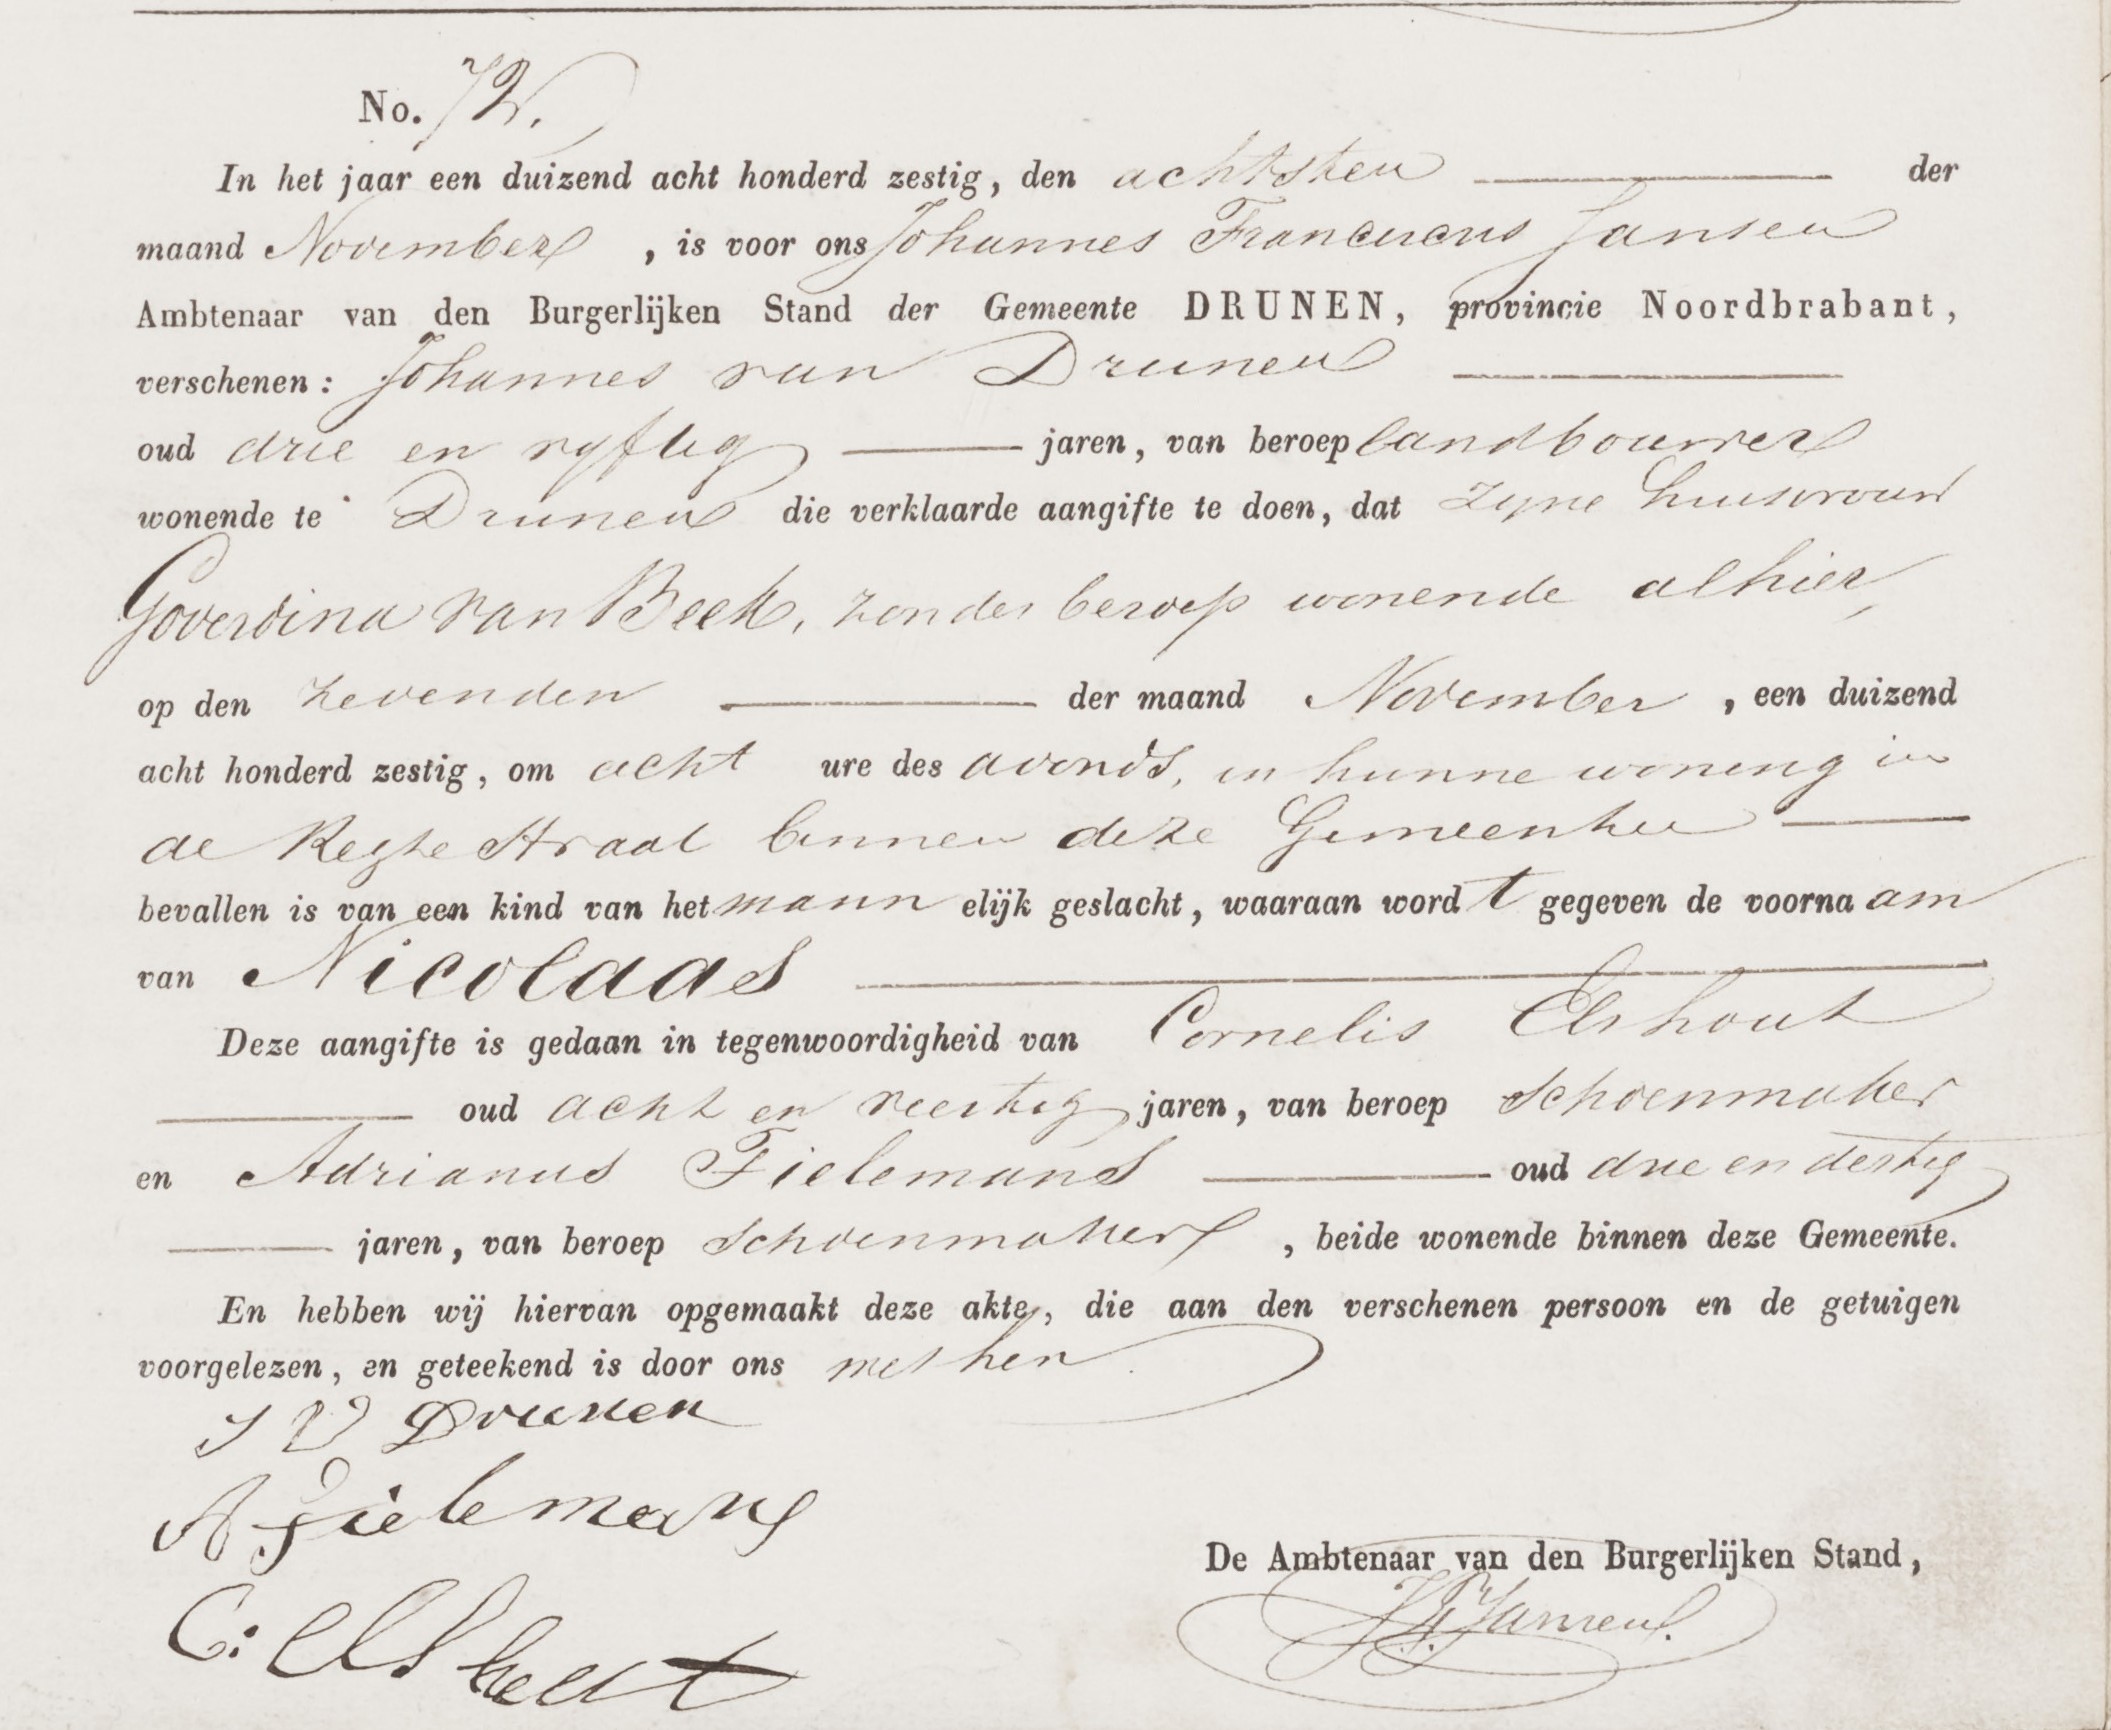 No. 72.
In het jaar een duizend acht honderd zestig, den achtsten der
maand November, is voor ons Johannes Franciscus Jansen
Ambtenaar van den Burgerlijken Stand der Gemeente DRUNEN, provincie Noordbrabant,
verschenen: Johannes van Drunen
oud drie en vyftig jaren, van beroep landbouwer
wonende te Drunen die verklaarde aangifte te doen, dat zyne huisvrouw
Goverdina van Beek, zonder beroep wonende alhier,
op den zevenden der maand November, een duizend
acht honderd zestig, om acht ure des avonds, in hunne woning in
de Regte Straat binnen deze Gemeente
bevallen is van een kind van het mannelijk geslacht, waaraan wordt gegeven de voornaam
van Nicolaas
Deze aangifte is gedaan in tegenwoordigheid van Cornelis Elshout
oud acht en veertig jaren, van beroep schoenmaker
en Adrianus Tielemans oud drie en dertig
jaren, van beroep schoenmaker, beide wonende binnen deze Gemeente.
En hebben wij hiervan opgemaakt deze akte, die aan den verschenen persoon en de getuigen
voorgelezen, en geteekend is door ons met hen
J V Drunen
A Tielemans
C: Elshout
De Ambtenaar van den Burgerlijken Stand,
JF Jansen.